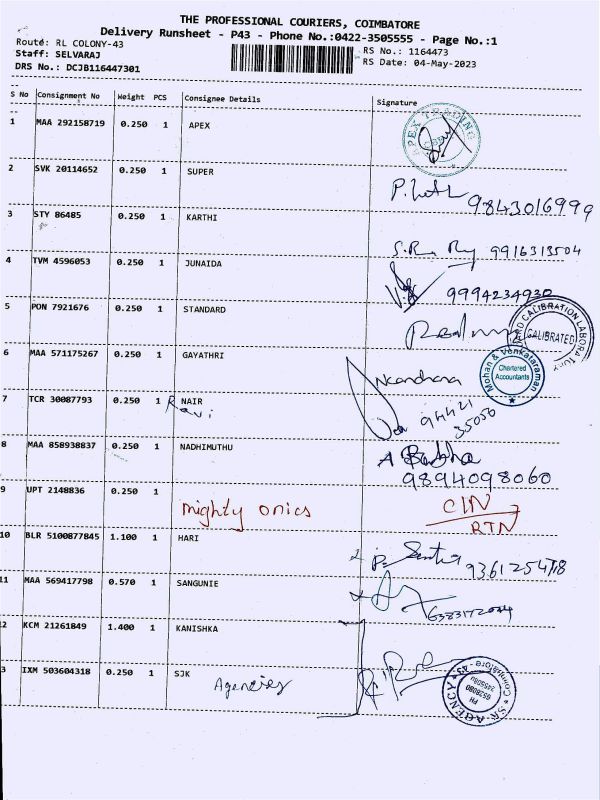 THE PROFESSIONAL COURIERS, COIMBATORE
Delivery Runsheet - P43 - Phone No.:0422-3505555 - Page No.:1
Route: RL COLONY-43
RS No.: 1164473
Staff: SELVARAJ
RS Date: 04-May-2023
DRS No.: DCJB116447301
S No Consignment No Weight PCS Consignee Details Signature
1 MAA 292158719 0.250 1 APEX
APEX TRADING
2 SVK 20114652 0.250 1 SUPER
9843016999
3 STY 86485 0.250 1 KARTHI
9916313504
4 TVM 4596053 0.250 1 JUNAIDA
9994234930
5 PON 7921676 0.250 1 STANDARD
CALIBRATION
CALIBRATED
6 MAA 571175267 0.250 1 GAYATHRI
Mohan & Venkataraman
Chartered
Accountants
7 TCR 30087793 0.250 1 NAIR
Ravi
94421
35056
8 MAA 858938837 0.250 1 NADHIMUTHU
9894098060
9 UPT 2148836 0.250 1
mighty onics
RTN
10 BLR 5100877845 1.100 1 HARI
11 MAA 569417798 0.570 1 SANGUNIE
2 KCM 21261849 1.400 1 KANISHKA
3 IXM 503604318 0.250 1 SJK
Agencies
S.R. AGENCY
Coimbatore - 43